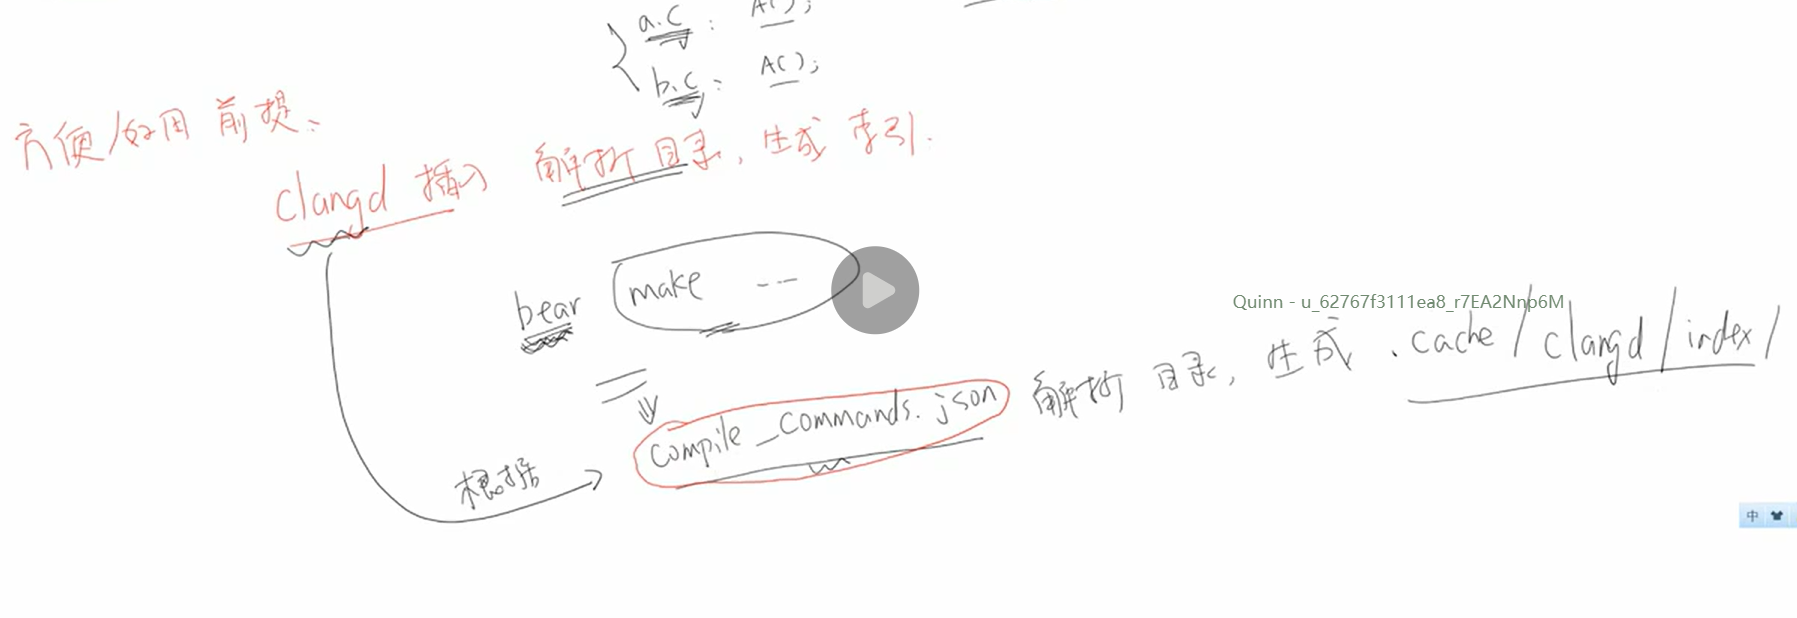 a.c : A();
b.c : A();
方便/好用 前提:
clangd 插入 解析目录, 生成 索引.
bear make ...
Quinn - u_62767f3111ea8_r7EA2Nnp6M
compile_commands.json 解析 目录, 生成 .cache/clangd/index/
根据
中